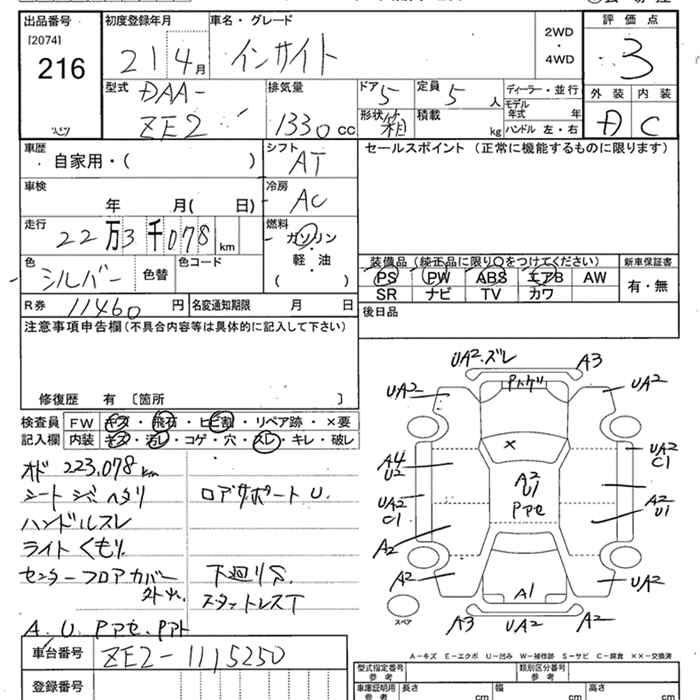 出品番号
[2074]
216
初度登録年月
21 4月
車名・グレード
インサイト
2WD
・
4WD
評価点
3
外装 内装
A C
型式
DAA-
ZE2
排気量
1330cc
ドア 5
形状 箱
定員 5 人
積載 kg
ディーラー・並行
モデル年式 年
ハンドル 左・右
車歴
自家用・( )
シフト
AT
車検
年 月( 日)
冷房
AC
走行
22万3千078km
燃料
ガソリン
・
軽・油
( )
色
シルバー
色替
色コード
R券 11460円
名変通知期限 月 日
セールスポイント(正常に機能するものに限ります)
装備品(純正品に限り○をつけてください)
PS PW ABS エアB AW
SR ナビ TV カワ
新車保証書
有・無
後日品
注意事項申告欄(不具合内容等は具体的に記入して下さい)
修復歴 有 〔箇所 〕
検査員記入欄
FW キズ・飛石・ヒビ割・リペア跡・×要
内装 キズ・汚レ・コゲ・穴・スレ・キレ・破レ
オド 223,078km
シート シミ ヘタリ
ハンドルスレ
ライト くもり
センターフロアカバー
外れ
A.U.Pアセ.Pアト
ロアサポートU.
下廻りS
スタットレスT
車台番号 ZE2-1115250
登録番号
UA2.ズレ
A3
UA2
Pハゲ
UA2
×
A4
U2
A2
U1
Pアセ
UA2
C1
UA2
C1
A2
U1
A2
A2
UA2
A1
A3
UA2
A2
スペア
A－キズ E－エクボ U－凹み W－補修跡 S－サビ C－腐食 ××－交換済
型式指定番号
参考
類別区分番号
参考
車庫証明用
参考
長さ cm
幅 cm
高さ cm